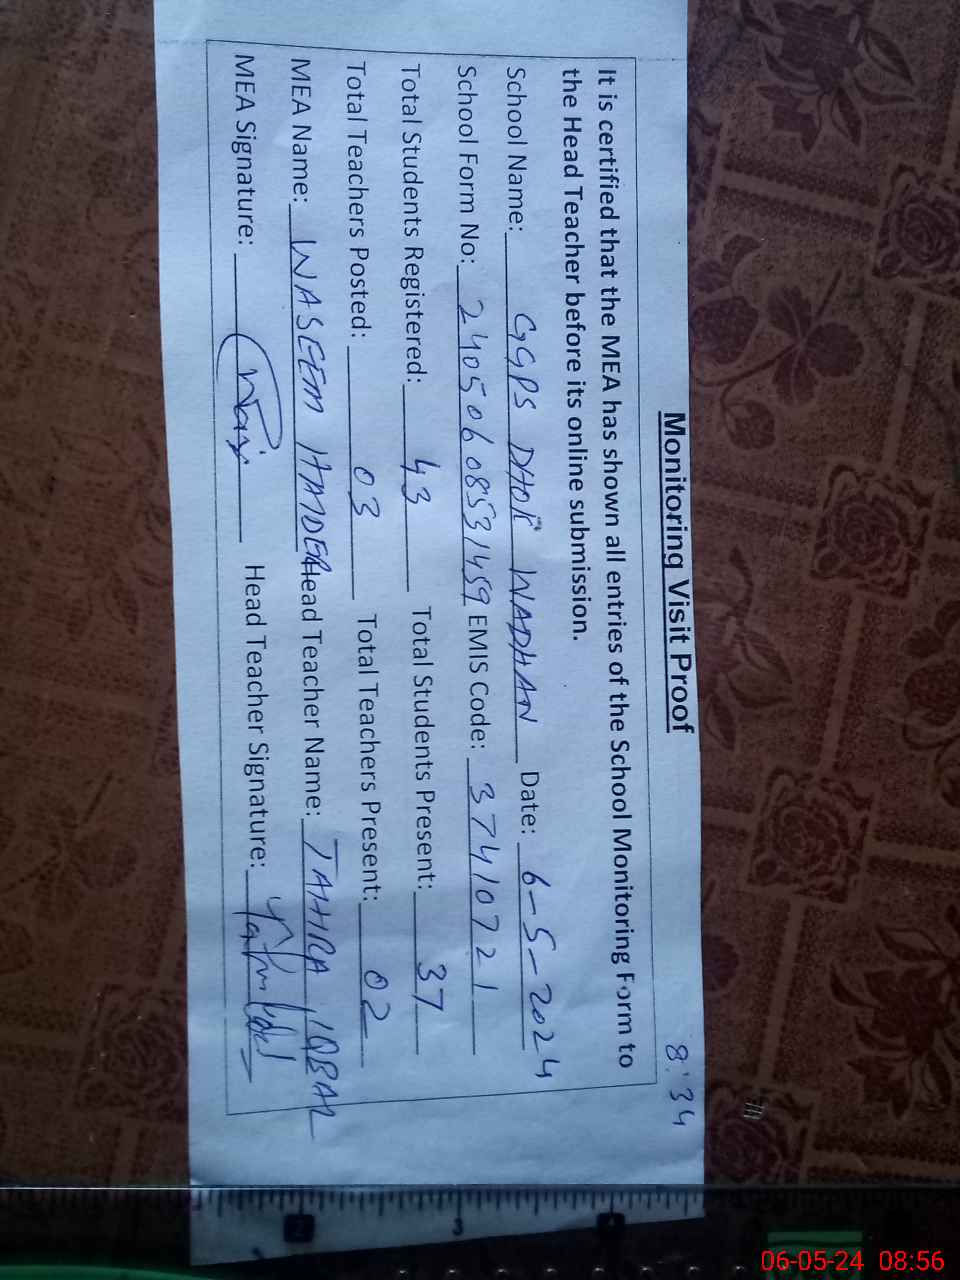 8:34
Monitoring Visit Proof
It is certified that the MEA has shown all entries of the School Monitoring Form to
the Head Teacher before its online submission.
School Name: GGPS DHOK WADHAN Date: 6-5-2024
School Form No: 24050608531459 EMIS Code: 37410721
Total Students Registered: 43 Total Students Present: 37
Total Teachers Posted: 03 Total Teachers Present: 02
MEA Name: WASEEM HAIDER Head Teacher Name: TAHIRA IQBAL
MEA Signature: Head Teacher Signature:
3
06-05-24 08:56